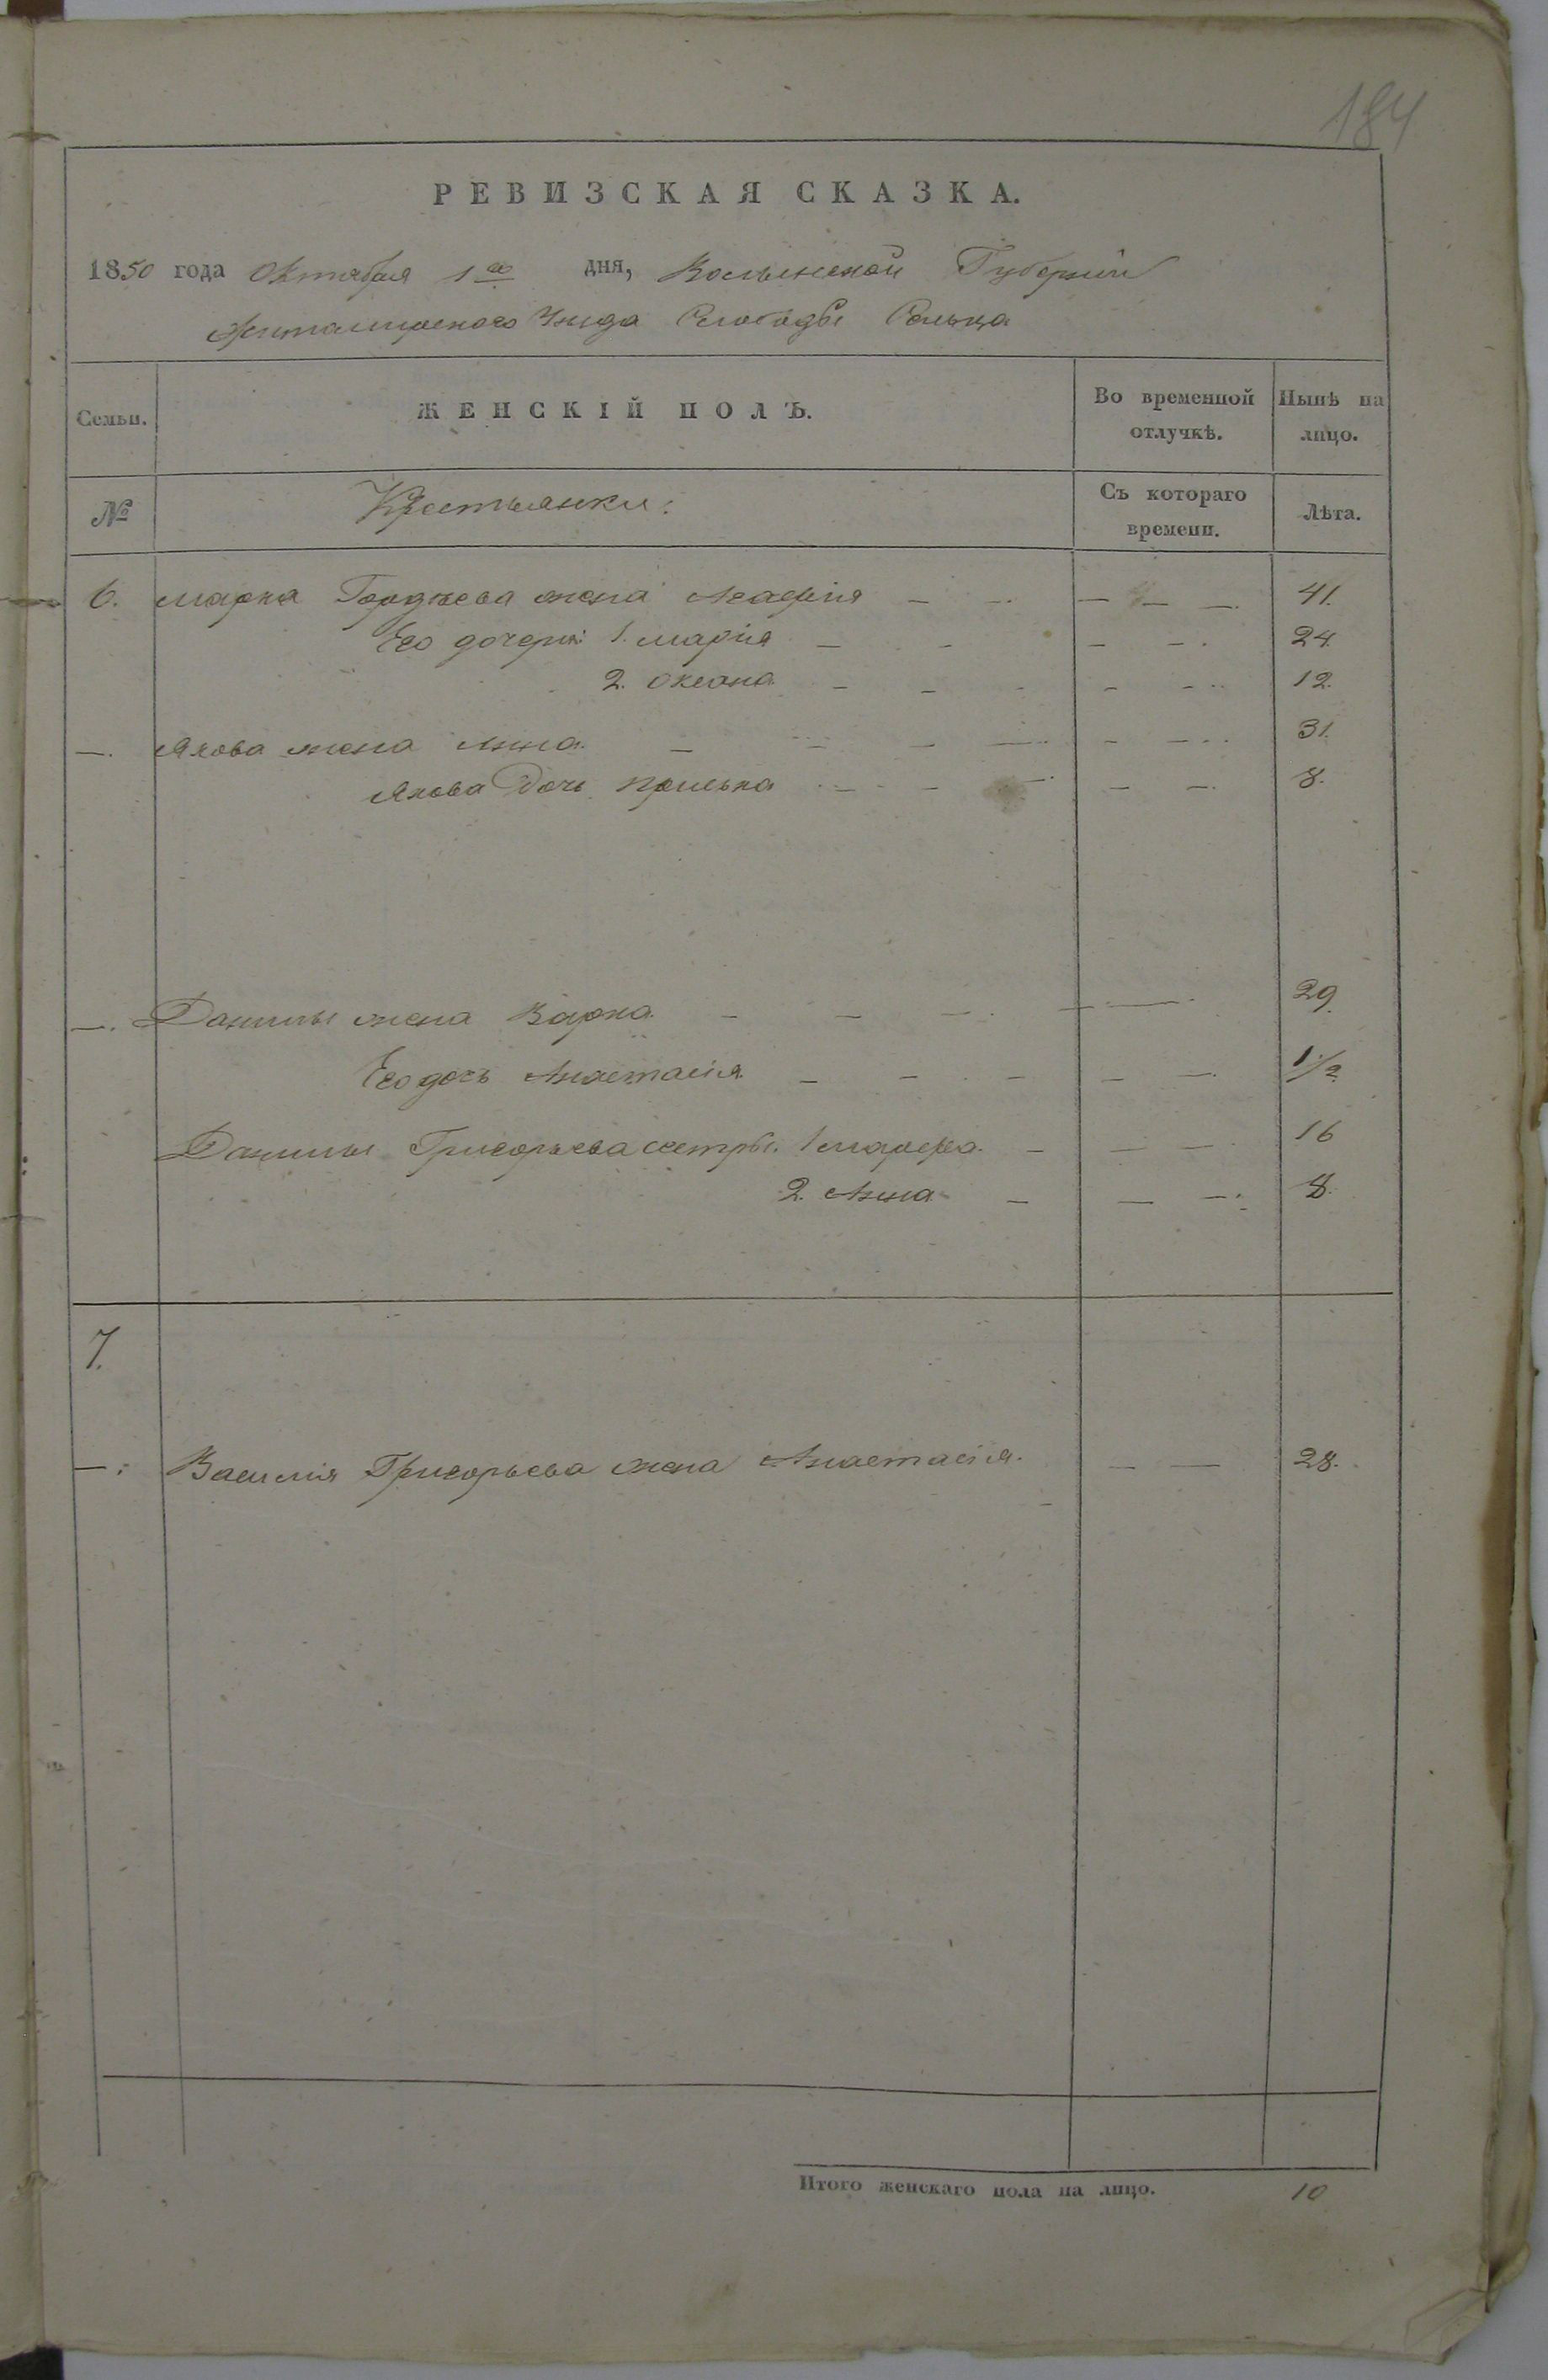 184
РЕВИЗСКАЯ СКАЗКА.
1850 года Октября 1го дня, Волынской Губерніи
Житомирского Уезда Слободы
Семьи. ЖЕНСКІЙ ПОЛЪ. Во временной отлучкѣ. Нынѣ на лицо.
№ Крестьянки: Съ котораго времени. Лѣта.
6. Марка Гордѣева жена Агафія — — — — —. 41.
Его дочери: 1. Марія — — — —. 24.
2. Оксана — — — — — 12.
—. Якова жена Анна. — — — — — — 31.
Якова Дочь — — — — —. 8.
—. Данилы жена Варка. — — — — — 29.
Его дочь Анастасія. — — — — —. 1/2
Данилы Григорьева сестры. 1 Марфа. — — — 16
2. Анна — — —. 8.
7.
—. Василія Григорьева жена Анастасія. — — — 28.
Итого женскаго пола на лицо. 10